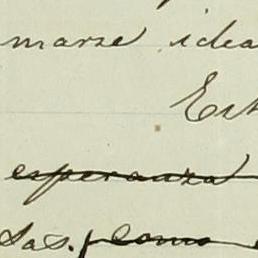 marse idea
Est
esperanza
das. como